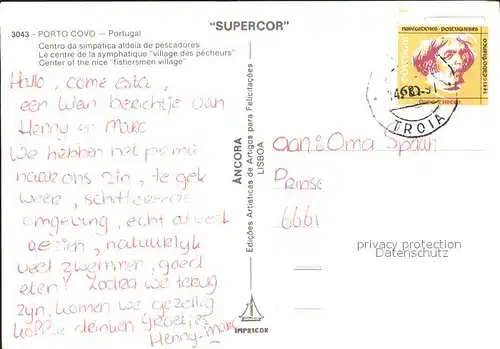 "SUPERCOR"
3043 - PORTO COVO — Portugal
Centro da simpática aldeia de pescadores
Le centre de la symphatique "village des pêcheurs"
Center of the nice "fishersmen village"
Hallo, come esta,
een klein berichtje van
Henny en Marc
We hebben het prima
naar ons zin, te gek
weer, schitterende
omgeving, echt al veel
gezien, natuurlijk
veel zwemmen, goed
eten! Zodra we terug
zijn, komen we gezellig
koffie drinken Groetjes
Henny - Marc
ÂNCORA
LISBOA
Edições Artísticas de Artigos para Felicitações
IMPRICOR
NAVEGADORES PORTUGUESES
PORTUGAL
TROIA
aan: Oma Spaan
Prinse
6661
photography protection
Datenschutz